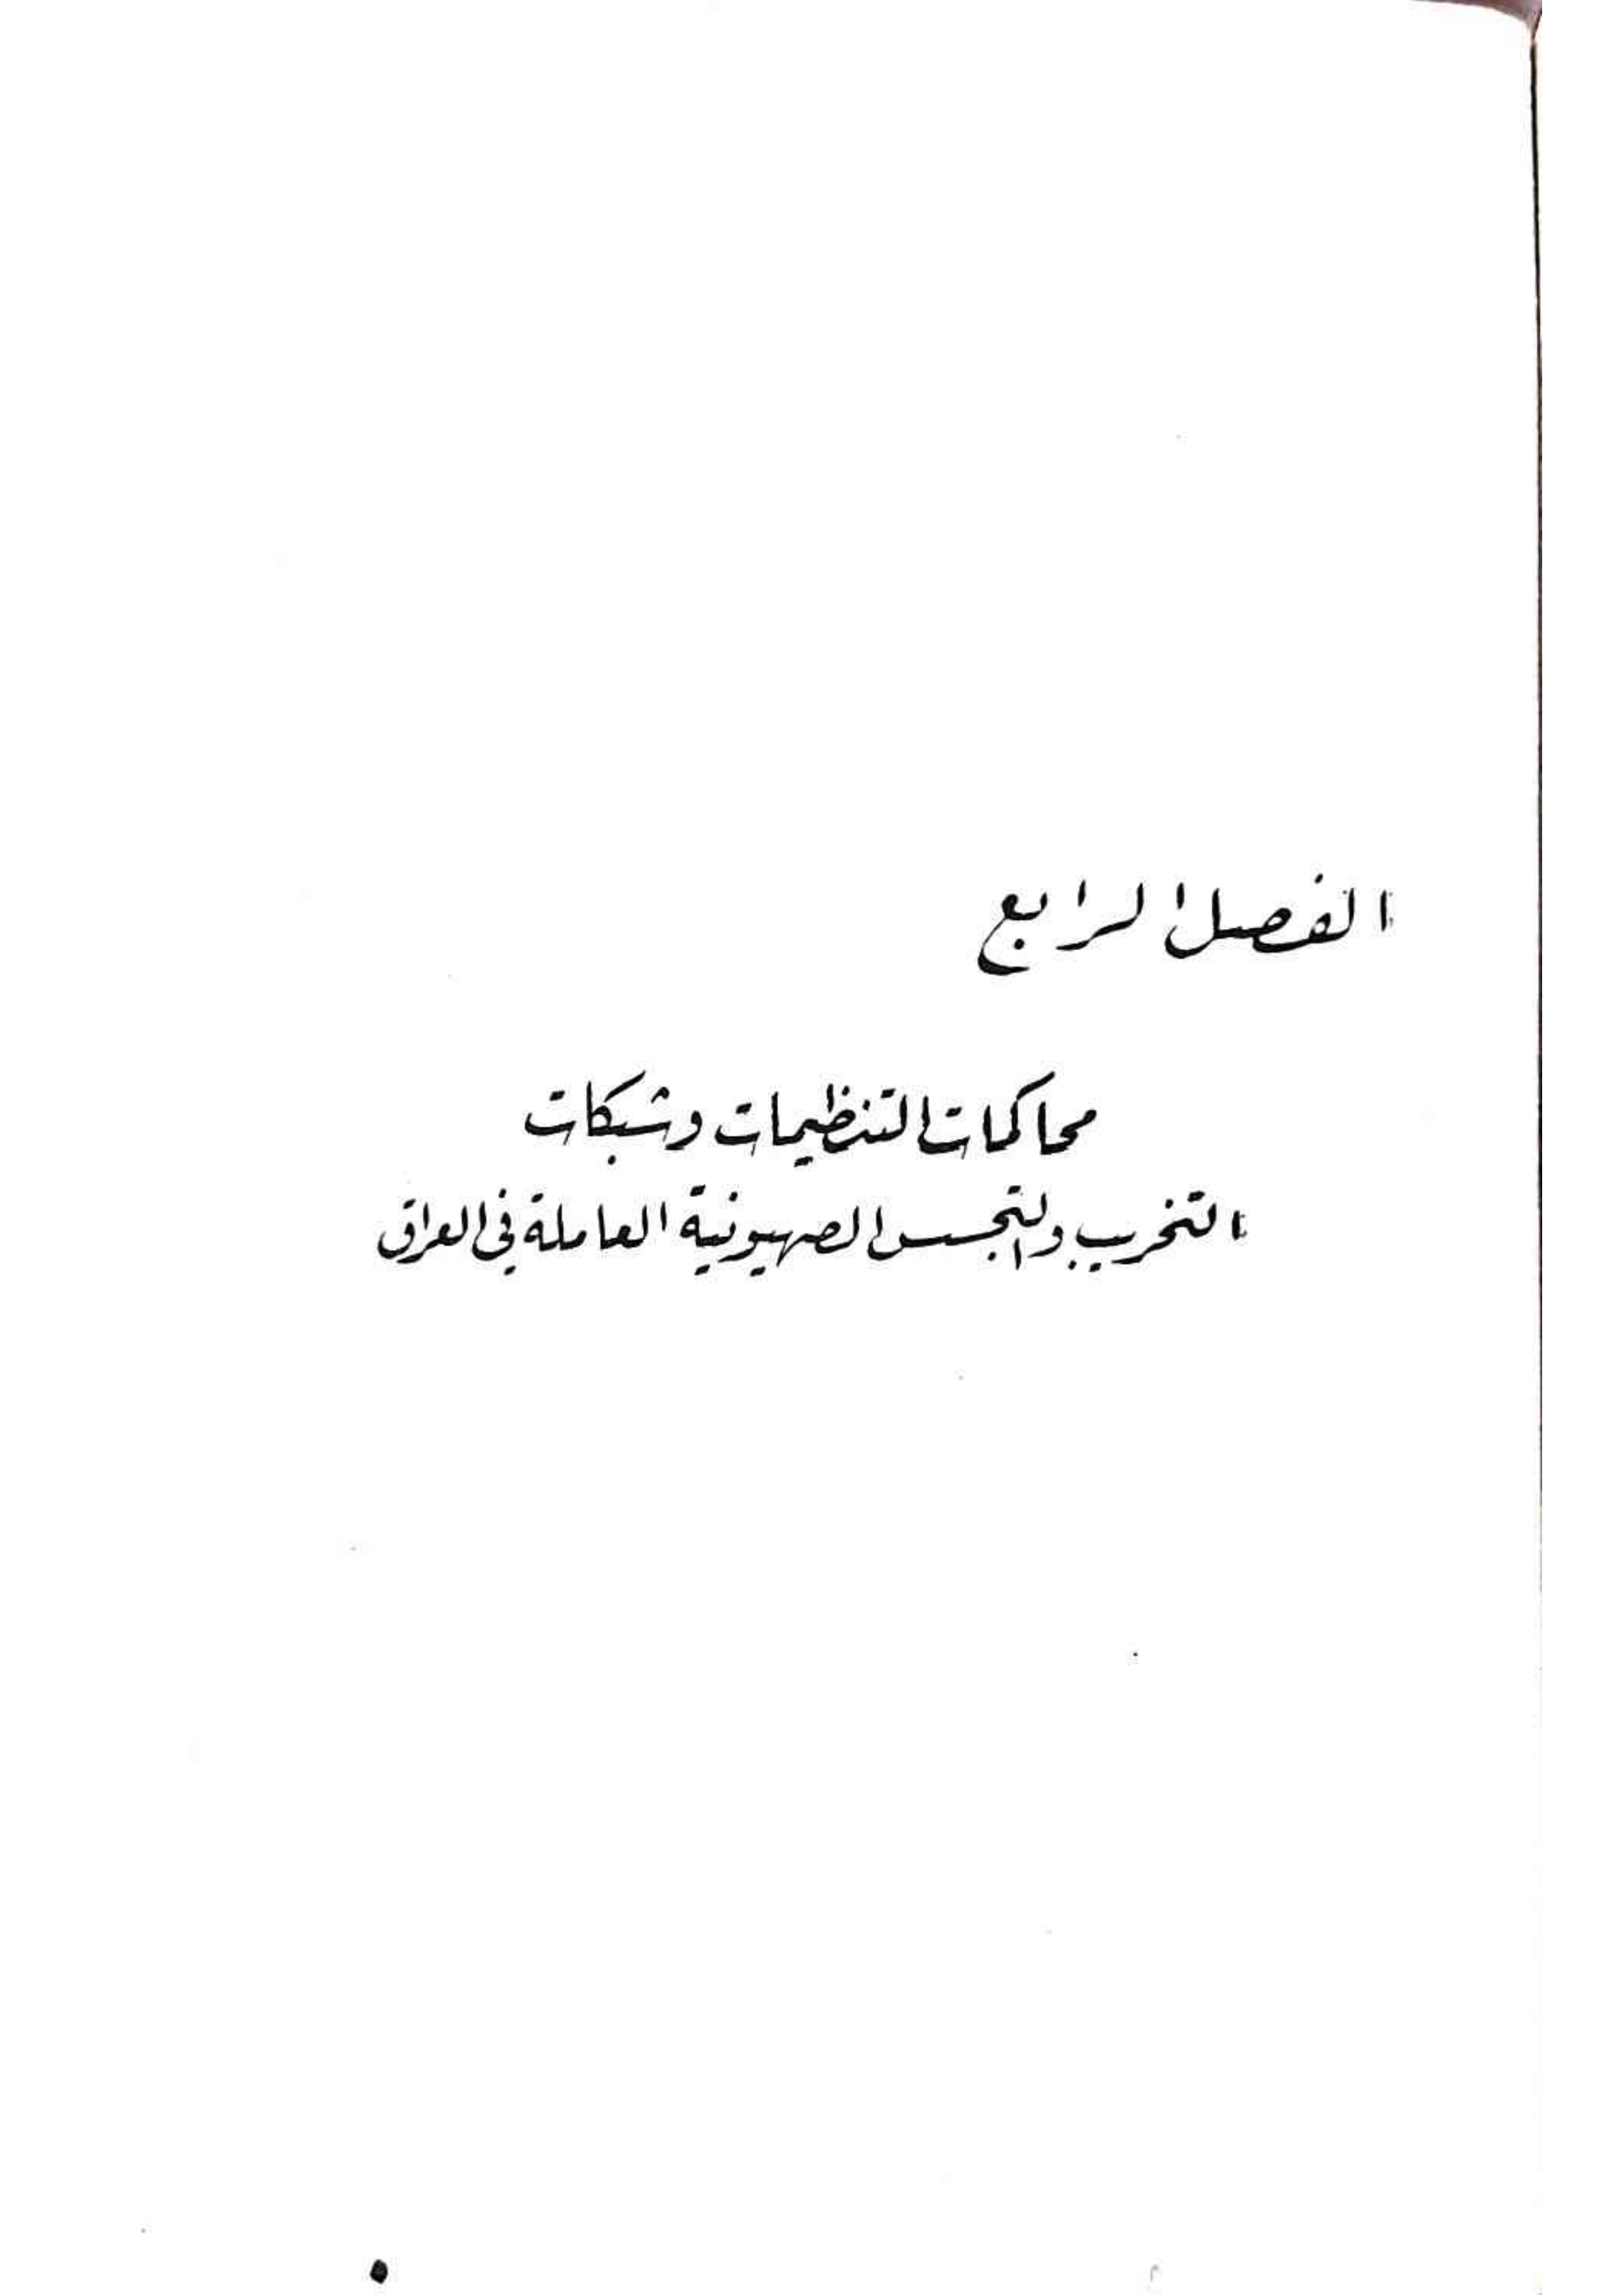 الفصل الرابع
محاكمات التنظيمات وشبكات
التخريب والتجسس الصهيونية العاملة في العراق